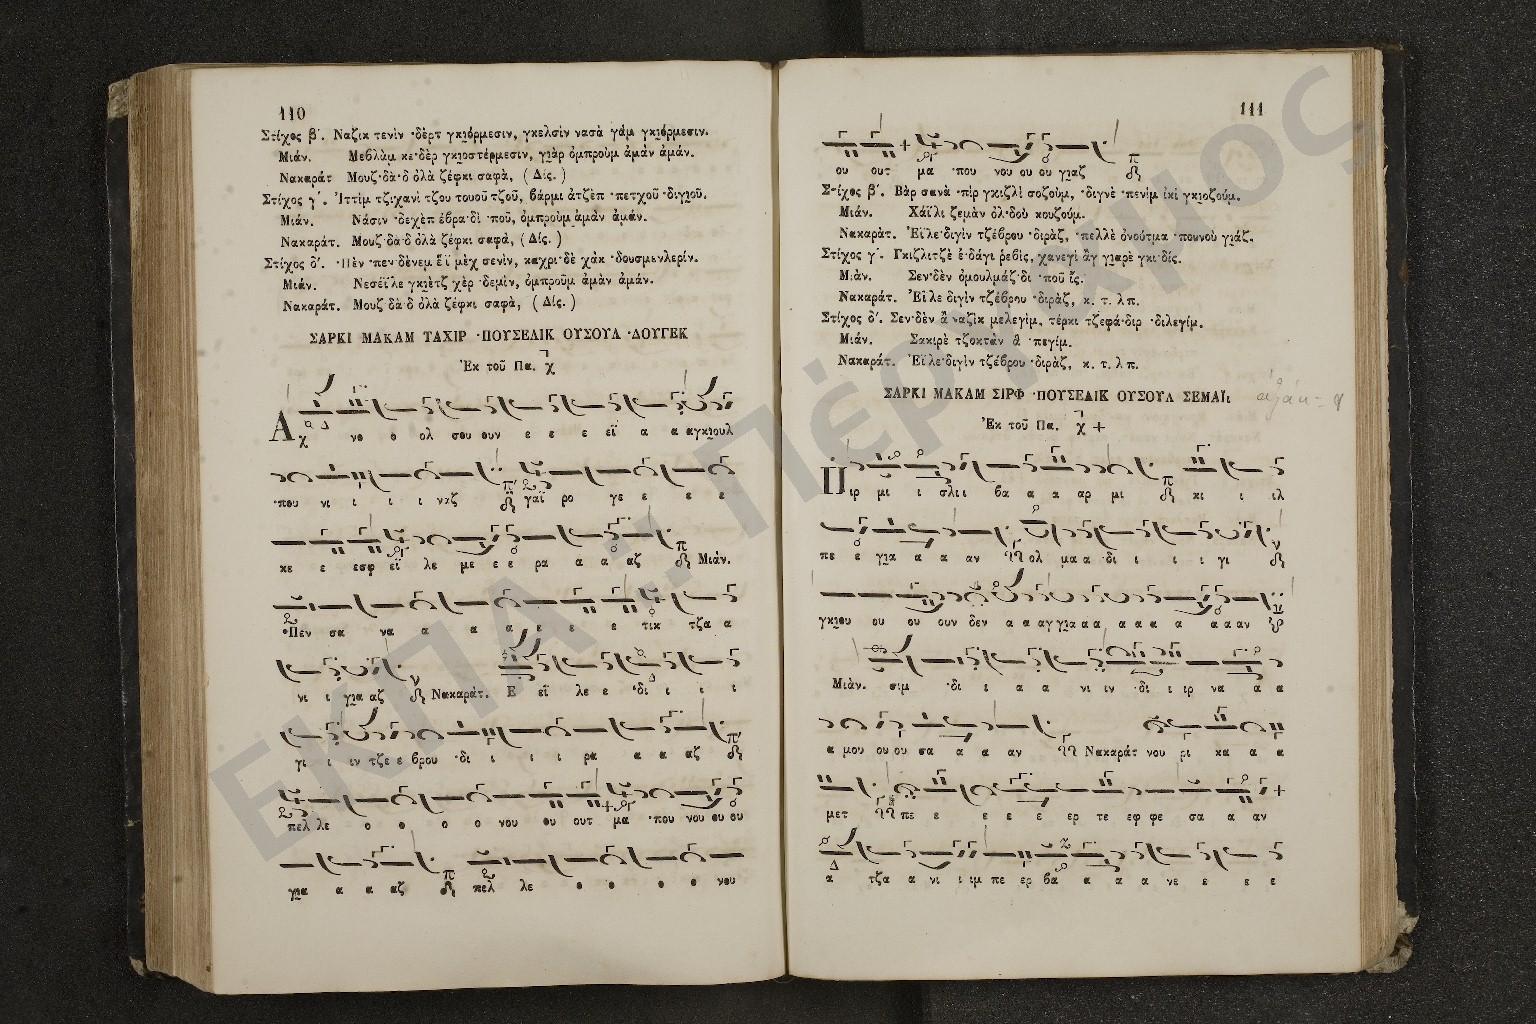 110
Στίχος β΄. Ναζικ τενὶν ·δὲρτ γκιόρμεσιν, γκελσὶν νασὰ γάμ γκιόρμεσιν.
Μιάν. Μεβλὰμ κε·δὲρ γκιοστέρμεσιν, γιὰρ ὀμπροὺμ ἀμὰν ἀμάν.
Νακαράτ Μουζ·δὰ·δ ὀλὰ ζέφκι σαφὰ, (Δίς.)
Στίχος γ΄. Ἰττὶμ τζιχανὶ τζου τουοῦ τζοῦ, βάρμι ἀτζὲπ ·πετχοῦ ·διγιοῦ.
Μιάν. Νάσιν ·δεχὲπ ἐβρα·δὶ ·ποῦ, ὀμπροὺμ ἀμὰν ἀμάν.
Νακαράτ. Μουζ·δὰ·δ ὀλὰ ζέφκι σαφὰ, (Δίς.)
Στίχος δ΄. ·Πὲν ·πεν·δένεμ ἒϊ μὲχ σενὶν, καχρι·δὲ χάκ ·δουσμενλερίν.
Μιάν. Νεσέϊ·λε γκιὲτζ χὲρ ·δεμὶν, ὀμπροὺμ ἀμὰν ἀμάν.
Νακαράτ. Μουζ·δὰ·δ ὀλὰ ζέφκι σαφὰ, (Δίς.)
ΣΑΡΚΙ ΜΑΚΑΜ ΤΑΧΙΡ ·ΠΟΥΣΕΛΙΚ ΟΥΣΟΥΛ ·ΔΟΥΓΕΚ
Ἐκ τοῦ Πα.
Α νο ο ολ σου ουν ε ε ε εϊ α α αγκιουλ
·που νι ι ι ι ναζ γαϊ ρο γε ε ε ε
κε ε εσφ εϊ λε με ε ε ρα α α αζ Μιάν.
·Πεν σα να α α α ε ε ε τικ τζα α
νι ι για αζ Νακαράτ. Ε εϊ λε ε ·δι ι ι ι
γι ι ιν τζε ε βρου ·δι ι ι ι ρα α α αζ
πελ λε ο ο ο ο νου ου ουτ μα ·που νου ου ου
για α α αζ πελ λε ο ο ο ο νου
111
ου ουτ μα ·που νου ου ου γιαζ
Στίχος β΄. Βὰρ σανὰ ·πὶρ γκιζλὶ σοζοὺμ, ·διγνὲ ·πενὶμ ἰκὶ γκιοζούμ.
Μιάν. Χάϊλι ζεμὰν ὀλ·δοὺ κουζούμ.
Νακαράτ. Ἔϊλε·διγὶν τζέβρου ·διρὰζ, ·πελλὲ ὀνούτμα ·πουνοὺ γιάζ.
Στίχος γ΄. Γκιζλιτζὲ ἐ·δάγι ρεβὶς, χανεγὶ ἂγ γιαρὲ γκι·δίς.
Μιάν. Σεν·δὲν ὀμουλμάζ·δι ·ποῦ ἴς.
Νακαράτ. Ἔϊλε διγὶν τζέβρου ·διρὰζ, κ. τ. λπ.
Στίχος δ΄. Σεν·δὲν ἂ ναζὶκ μελεγὶμ, τέρκι τζεφά·διρ ·διλεγίμ.
Μιάν. Σακιρὲ τζοκτὰν ·πεγίμ.
Νακαράτ. Ἔϊλε·διγὶν τζέβρου ·διρὰζ, κ. τ. λπ.
ΣΑΡΚΙ ΜΑΚΑΜ ΣΙΡΦ ·ΠΟΥΣΕΛΙΚ ΟΥΣΟΥΛ ΣΕΜΑΪ
Ἐκ τοῦ Πα.
Πιρ μι ι σλι ι βα α α αρ μι κι ι ιλ
πε ε για α α αν ολ μα α ·δι ι ι ι γι
γκιου ου ου ουν δεν α α αγ για α α α α α α α α αν
Μιάν. σιμ ·δι ι α α νι ιν ·δι ι ιρ να α α
α μου ου ου σα α α αν Νακαράτ νου ρι κα α α
μετ πε ε ε ε ε ερ τε εφ φε σα α αν
α τζα α νι ι ιμ πε ερ βα α α α νε ε ε ε
ΕΚΠΑ: Πέργαμος